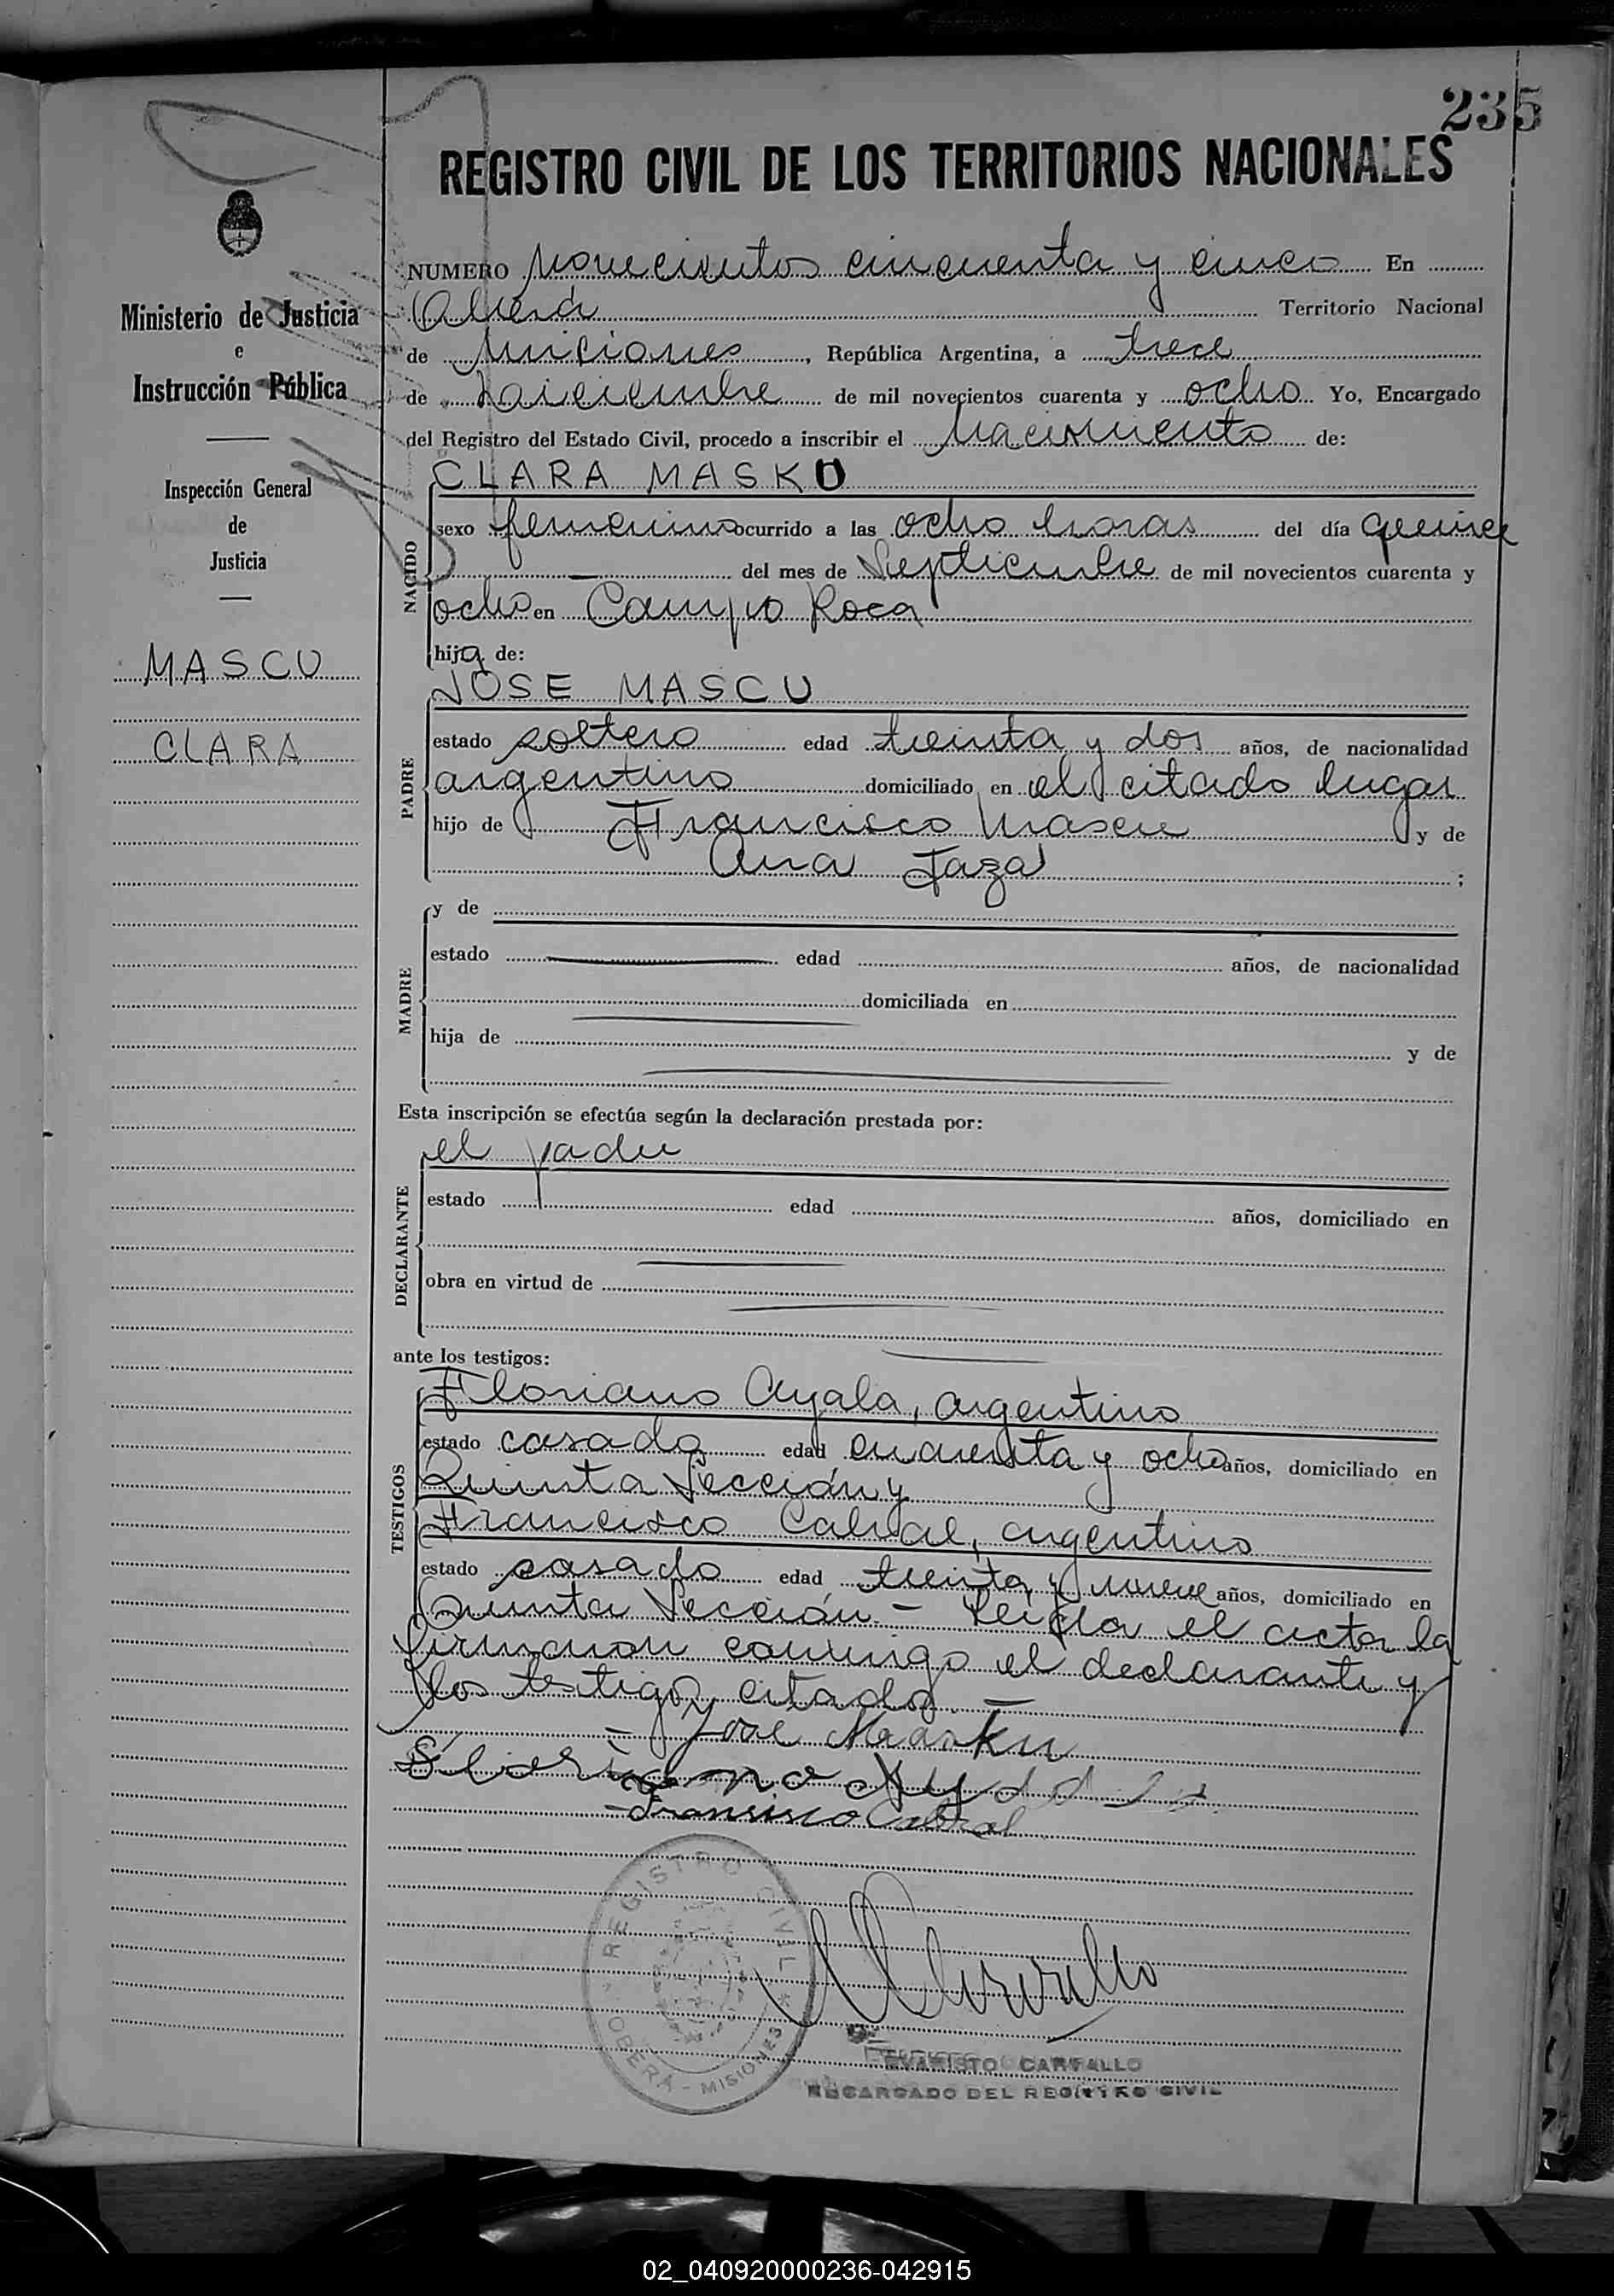 235
REGISTRO CIVIL DE LOS TERRITORIOS NACIONALES
Ministerio de Justicia
e
Instrucción Pública
Inspección General
de
Justicia
MASCU
CLARA
NUMERO novecientos cincuenta y cinco En
Oberá Territorio Nacional
de Misiones, República Argentina, a trece
de Diciembre de mil novecientos cuarenta y ocho Yo, Encargado
del Registro del Estado Civil, procedo a inscribir el Nacimiento de:
NACIDO
CLARA MASKU
sexo femenino ocurrido a las ocho horas del día quince
del mes de Septiembre de mil novecientos cuarenta y
ocho en Campo Roca
hija de:
PADRE
JOSE MASCU
estado soltero edad treinta y dos años, de nacionalidad
argentino domiciliado en el citado lugar
hijo de Francisco Mascu y de
Ana Taza;
MADRE
y de
estado edad años, de nacionalidad
domiciliada en
hija de y de
Esta inscripción se efectúa según la declaración prestada por:
DECLARANTE
el padre
estado edad años, domiciliado en
obra en virtud de
ante los testigos:
TESTIGOS
Floriano Ayala, argentino
estado casado edad cuarenta y ocho años, domiciliado en
Quinta Sección y
Francisco Cabral, argentino
estado casado edad treinta y nueve años, domiciliado en
Quinta Sección - Leída el acta la
firmaron conmigo el declarante y
los testigos citados -
- José Masku
Francisco Cabral
REGISTRO CIVIL
OBERA - MISIONES
EVARISTO CARVALLO
ENCARGADO DEL REGISTRO CIVIL
02_040920000236-042915